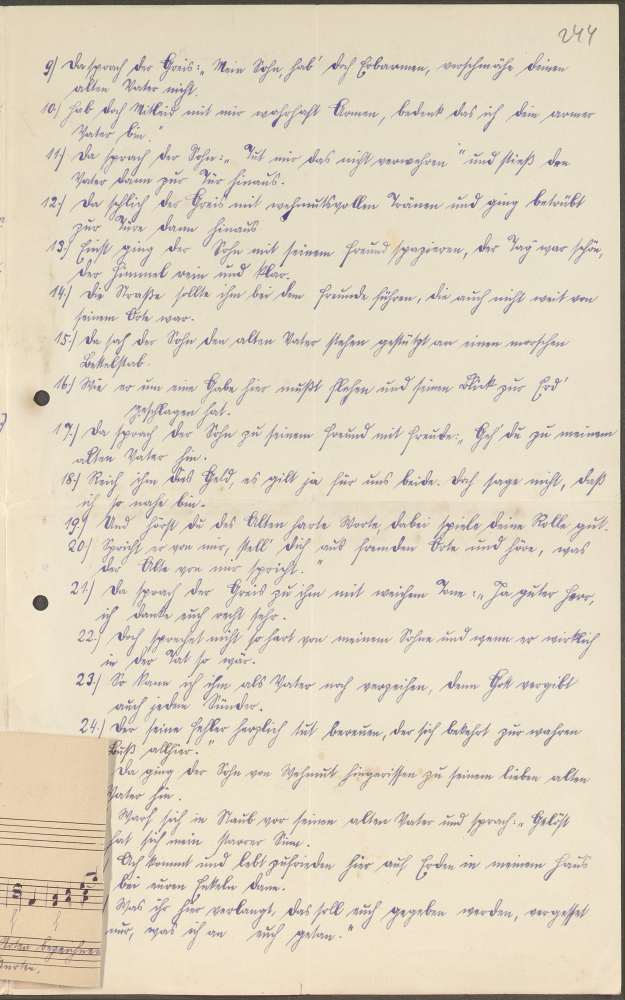 244
9) Da sprach der Greis: „Mein Sohn, hab' doch Erbarmen, verschmähe deinen
alten Vater nicht.
10) Hab doch Mitleid mit mir wahrhaft Armen, bedenk das ich dein armer
Vater bin."
11) Da sprach der Sohn: „Tut mir das nicht verwehren" und stieß den
Vater dann zur Tür hinaus.
12) Da schlich der Greis mit wehmutsvollen Tränen und ging betrübt
zur Türe dann hinaus
13) Einst ging der Sohn mit seinem Freund spazieren, der Tag war schön,
der Himmel rein und klar.
14) Die Straße sollte ihn bei dem Freunde führen, die auch nicht weit von
seinem Orte war.
15) Da sah der Sohn den alten Vater stehen gestützt an einen morschen
Bettelstab.
16) Wie er um eine Gabe hier mußt flehen und seinen Blick zur Erd'
geschlagen hat.
17) Da sprach der Sohn zu seinem Freund mit Freude: „Geh' du zu meinem
alten Vater hin.
18) Reich ihm das Geld, es gilt ja für uns beide. Doch sage nicht, daß
ich so nahe bin.
19) Und hörst du des Alten harte Worte, dabei spiele deine Rolle gut.
20) Spricht er von mir, stell' dich aus fremden Orte und höre, was
der Alte von mir spricht."
21) Da sprach der Greis zu ihm mit weichem Tone: „Ja guter Herr,
ich danke euch recht sehr.
22) Doch sprechet nicht so hart von meinem Sohne und wenn er wirklich
in der Tat so wär.
23) So kann ich ihm als Vater noch verzeihen, denn Gott vergibt
auch jedem Sünder.
24) Der seine Fehler herzlich tut bereuen, der sich bekehrt zur wahren
Buß allhier."
Da ging der Sohn von Wehmut hingerissen zu seinem lieben alten
Vater hin.
Warf sich in Staub vor seinen alten Vater und sprach: „Gelöst
hat sich mein starrer Sinn.
Ach kommt und lebt zufrieden hier auf Erden in meinem Haus
bei euren Enkeln dann.
Was ihr hier verlangt, das soll euch gegeben werden, vergesset
nur, was ich an euch getan."
Noten